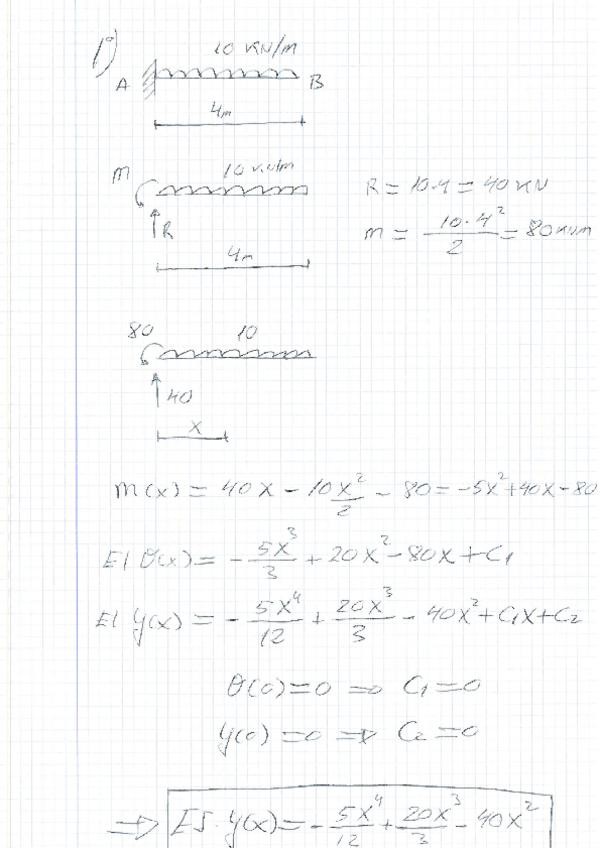 1º)
10 KN/m
A B
4m
M 10 KN/m
R
4m
R = 10·4 = 40 KN
m = 10·4² / 2 = 80 KNm
80 10
40
x
m(x) = 40x - 10x²/2 - 80 = -5x² + 40x - 80
EI θ(x) = - 5x³/3 + 20x² - 80x + C₁
EI y(x) = - 5x⁴/12 + 20x³/3 - 40x² + C₁x + C₂
θ(0) = 0 ⇒ C₁ = 0
y(0) = 0 ⇒ C₂ = 0
⇒ EI·y(x) = - 5x⁴/12 + 20x³/3 - 40x²